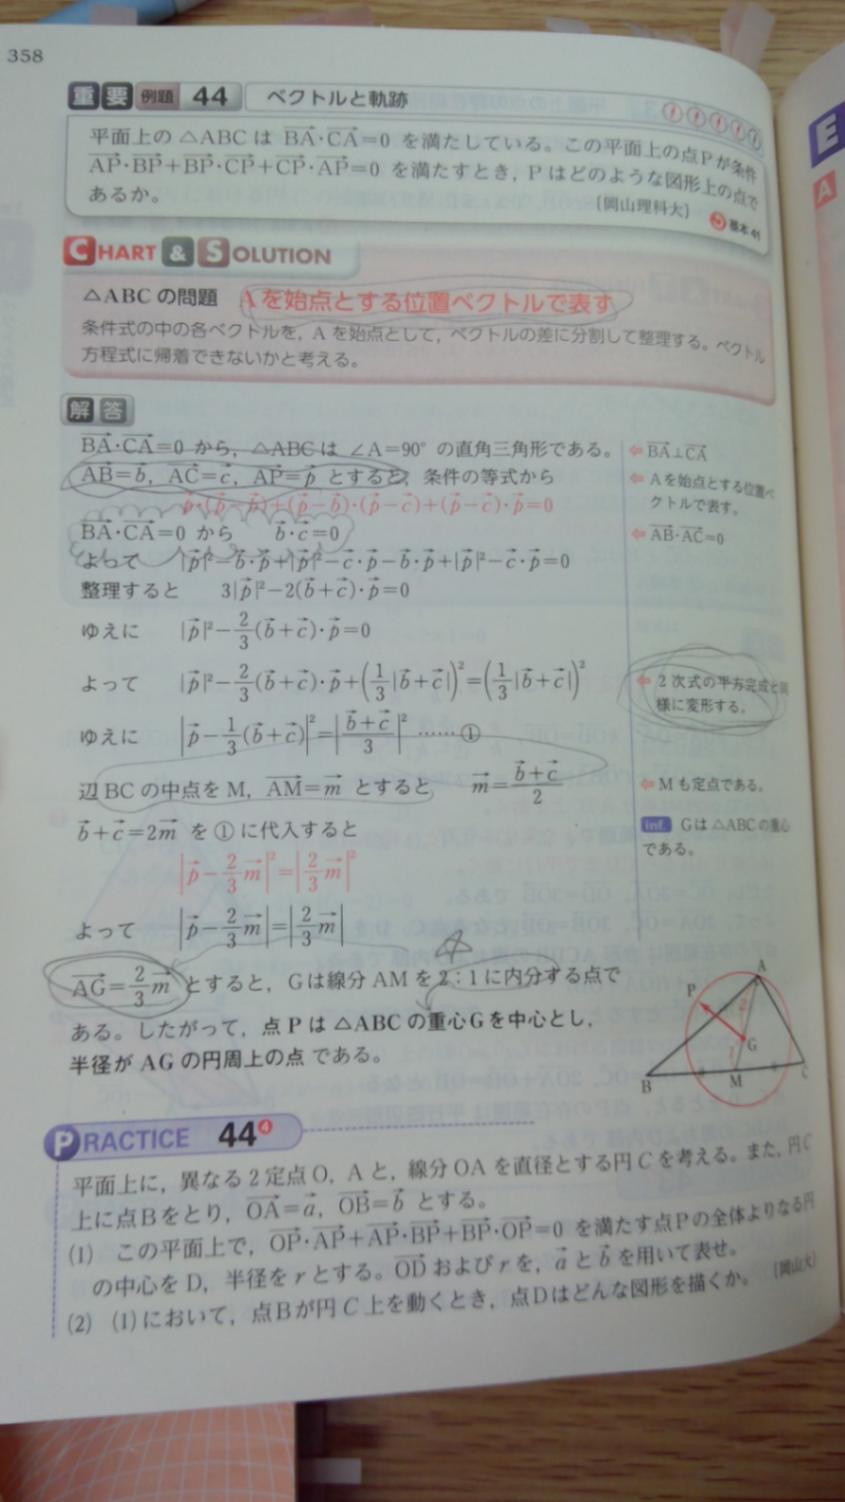 358
重要 例題 44 ベクトルと軌跡
平面上の △ABC は BA・CA=0 を満たしている。この平面上の点Pが条件
AP・BP+BP・CP+CP・AP=0 を満たすとき,Pはどのような図形上の点で
あるか。 〔岡山理科大〕 基本 41
CHART & SOLUTION
△ABCの問題 Aを始点とする位置ベクトルで表す
条件式の中の各ベクトルを,Aを始点として,ベクトルの差に分割して整理する。ベクトル
方程式に帰着できないかと考える。
解答
BA・CA=0 から,△ABCは ∠A=90° の直角三角形である。 ⇦ BA⊥CA
AB=b, AC=c, AP=p とすると,条件の等式から ⇦ Aを始点とする位置ベ
クトルで表す。
p・(p-b)+(p-b)・(p-c)+(p-c)・p=0
BA・CA=0 から b・c=0 ⇦ AB・AC=0
よって |p|²-b・p+|p|²-c・p-b・p+|p|²-c・p=0
整理すると 3|p|²-2(b+c)・p=0
ゆえに |p|²-2/3(b+c)・p=0
よって |p|²-2/3(b+c)・p+(1/3|b+c|)²=(1/3|b+c|)² ⇦ 2次式の平方完成と同
様に変形する。
ゆえに |p-1/3(b+c)|²=|(b+c)/3|² ……①
辺BCの中点をM, AM=m とすると m=(b+c)/2 ⇦ Mも定点である。
b+c=2m を①に代入すると
inf. Gは△ABCの重心
である。
|p-2/3m|²=|2/3m|²
よって |p-2/3m|=|2/3m|
AG=2/3m とすると,Gは線分AMを2:1に内分する点で
ある。したがって,点Pは△ABCの重心Gを中心とし,
半径がAGの円周上の点である。
A
P
2
G
1
B
M
C
PRACTICE 44④
平面上に,異なる2定点O,Aと,線分OAを直径とする円Cを考える。また,円C
上に点Bをとり,OA=a, OB=b とする。
(1) この平面上で,OP・AP+AP・BP+BP・OP=0 を満たす点Pの全体よりなる円
の中心をD,半径をrとする。ODおよびrを,aとbを用いて表せ。
(2) (1)において,点Bが円C上を動くとき,点Dはどんな図形を描くか。 〔岡山大〕
E
A